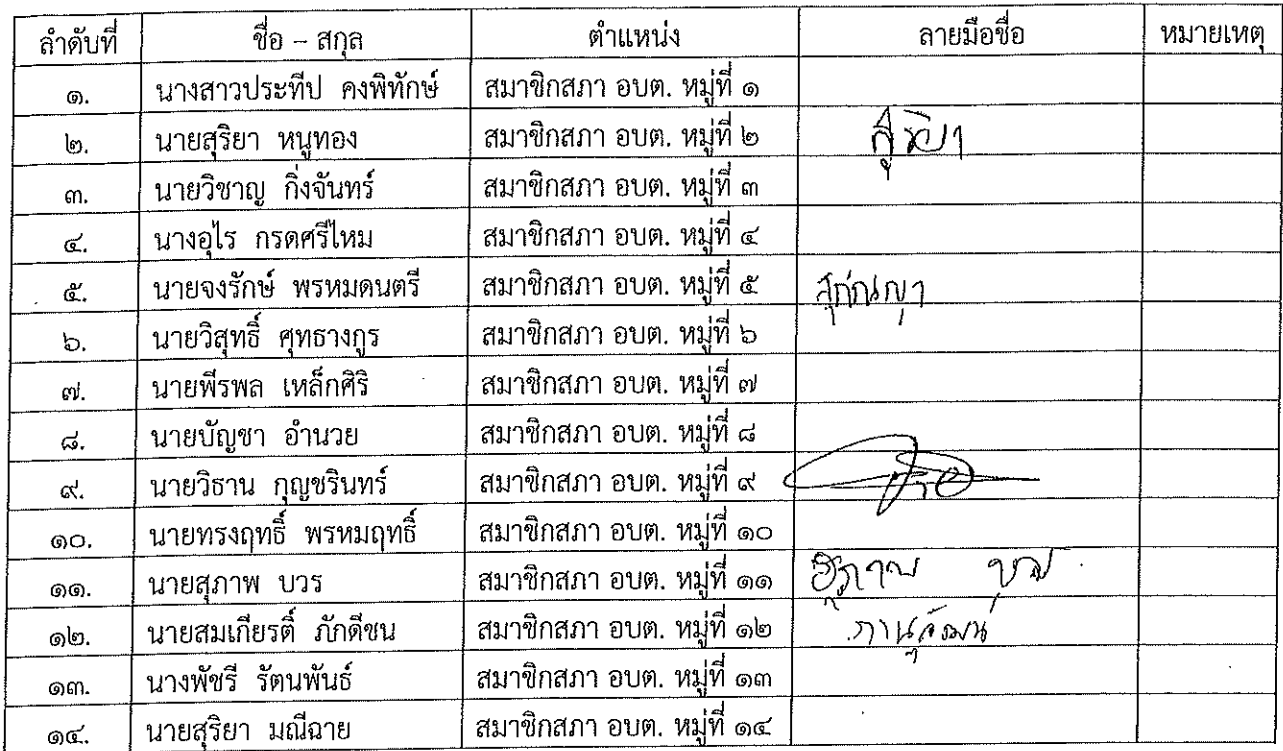 ลำดับที่ ชื่อ – สกุล ตำแหน่ง ลายมือชื่อ หมายเหตุ
๑. นางสาวประทีป คงพิทักษ์ สมาชิกสภา อบต. หมู่ที่ ๑
๒. นายสุริยา หนูทอง สมาชิกสภา อบต. หมู่ที่ ๒
๓. นายวิชาญ กิ่งจันทร์ สมาชิกสภา อบต. หมู่ที่ ๓
๔. นางอุไร กรดศรีไหม สมาชิกสภา อบต. หมู่ที่ ๔
๕. นายจงรักษ์ พรหมดนตรี สมาชิกสภา อบต. หมู่ที่ ๕
๖. นายวิสุทธิ์ ศุทธางกูร สมาชิกสภา อบต. หมู่ที่ ๖
๗. นายพีรพล เหล็กศิริ สมาชิกสภา อบต. หมู่ที่ ๗
๘. นายบัญชา อำนวย สมาชิกสภา อบต. หมู่ที่ ๘
๙. นายวิธาน กุญชรินทร์ สมาชิกสภา อบต. หมู่ที่ ๙
๑๐. นายทรงฤทธิ์ พรหมฤทธิ์ สมาชิกสภา อบต. หมู่ที่ ๑๐
๑๑. นายสุภาพ บวร สมาชิกสภา อบต. หมู่ที่ ๑๑
๑๒. นายสมเกียรติ์ ภักดีชน สมาชิกสภา อบต. หมู่ที่ ๑๒
๑๓. นางพัชรี รัตนพันธ์ สมาชิกสภา อบต. หมู่ที่ ๑๓
๑๔. นายสุริยา มณีฉาย สมาชิกสภา อบต. หมู่ที่ ๑๔